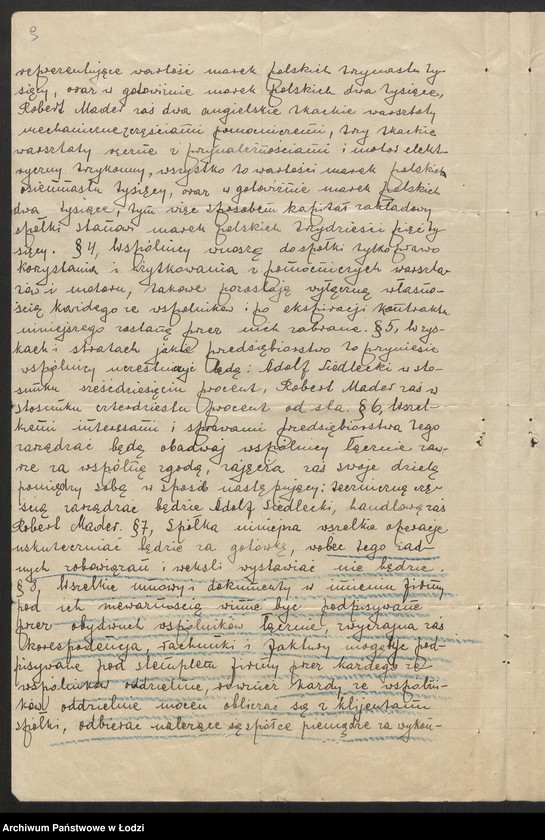 9
reprezentujące wartość marek polskich trzynastu ty-
sięcy, oraz w gotowiźnie marek polskich dwa tysiące,
Robert Mader zaś dwa angielskie tkackie warsztaty
mechaniczne z częściami pomocniczemi, trzy tkackie
warsztaty ręczne z przynależnościami i motor elekt-
ryczny trzykonny, wszystko to wartości marek polskich
osiemnastu tysięcy, oraz w gotowiźnie marek polskich
dwa tysiące, tym więc sposobem kapitał zakładowy
spółki stanowi marek polskich trzydzieści pięć ty-
sięcy. § 4, Wspólnicy wnoszą do spółki tylko prawo
korzystania i użytkowania z pomocniczych warszta-
tów i motoru, takowe pozostają wyłączną własno-
ścią każdego ze wspólników i po ekspiracji kontraktu
niniejszego zostaną przez nich zabrane. § 5, W zys-
kach i stratach jakie przedsiębiorstwo to przyniesie
wspólnicy uczestniczyć będą: Adolf Siedlecki w sto-
sunku sześćdziesięciu procent, Robert Mader zaś w
stosunku czterdziestu procent od sta. § 6, Wszel-
kiemi interesami i sprawami przedsiębiorstwa tego
zarządzać będą obadwaj wspólnicy łącznie zaw-
sze za wspólną zgodą, zajęcia zaś swoje dzielą
pomiędzy sobą w sposób następujący: techniczną czę-
ścią zarządzać będzie Adolf Siedlecki, handlową zaś
Robert Mader. § 7, Spółka niniejsza wszelkie operacje
uskuteczniać będzie za gotówkę, wobec tego żad-
nych zobowiązań i weksli wystawiać nie będzie.
§ 8, Wszelkie umowy i dokumenty w imieniu firmy
pod ich nieważnością winne być podpisywane
przez obydwuch wspólników łącznie, zwyczajna zaś
korespondencja, rachunki i faktury mogą być pod-
pisywane pod stemplem firmy przez każdego ze
wspólników oddzielnie, również każdy ze wspólni-
ków oddzielnie mocen obliczać się z klijentami
spółki, odbierać należące się spółce pieniądze za wykoń-
Archiwum Państwowe w Łodzi